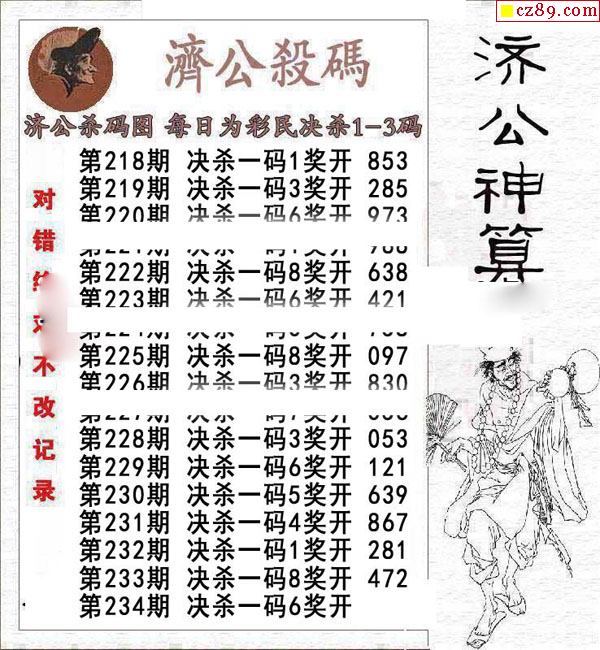 cz89.com
濟公殺碼
济公杀码图 每日为彩民决杀1-3码
第218期 决杀一码1奖开 853
第219期 决杀一码3奖开 285
第220期 决杀一码6奖开 973
第222期 决杀一码8奖开 638
第223期 决杀一码6奖开 421
第225期 决杀一码8奖开 097
第226期 决杀一码3奖开 830
第228期 决杀一码3奖开 053
第229期 决杀一码6奖开 121
第230期 决杀一码5奖开 639
第231期 决杀一码4奖开 867
第232期 决杀一码1奖开 281
第233期 决杀一码8奖开 472
第234期 决杀一码6奖开
对错 不改记录
济公神算